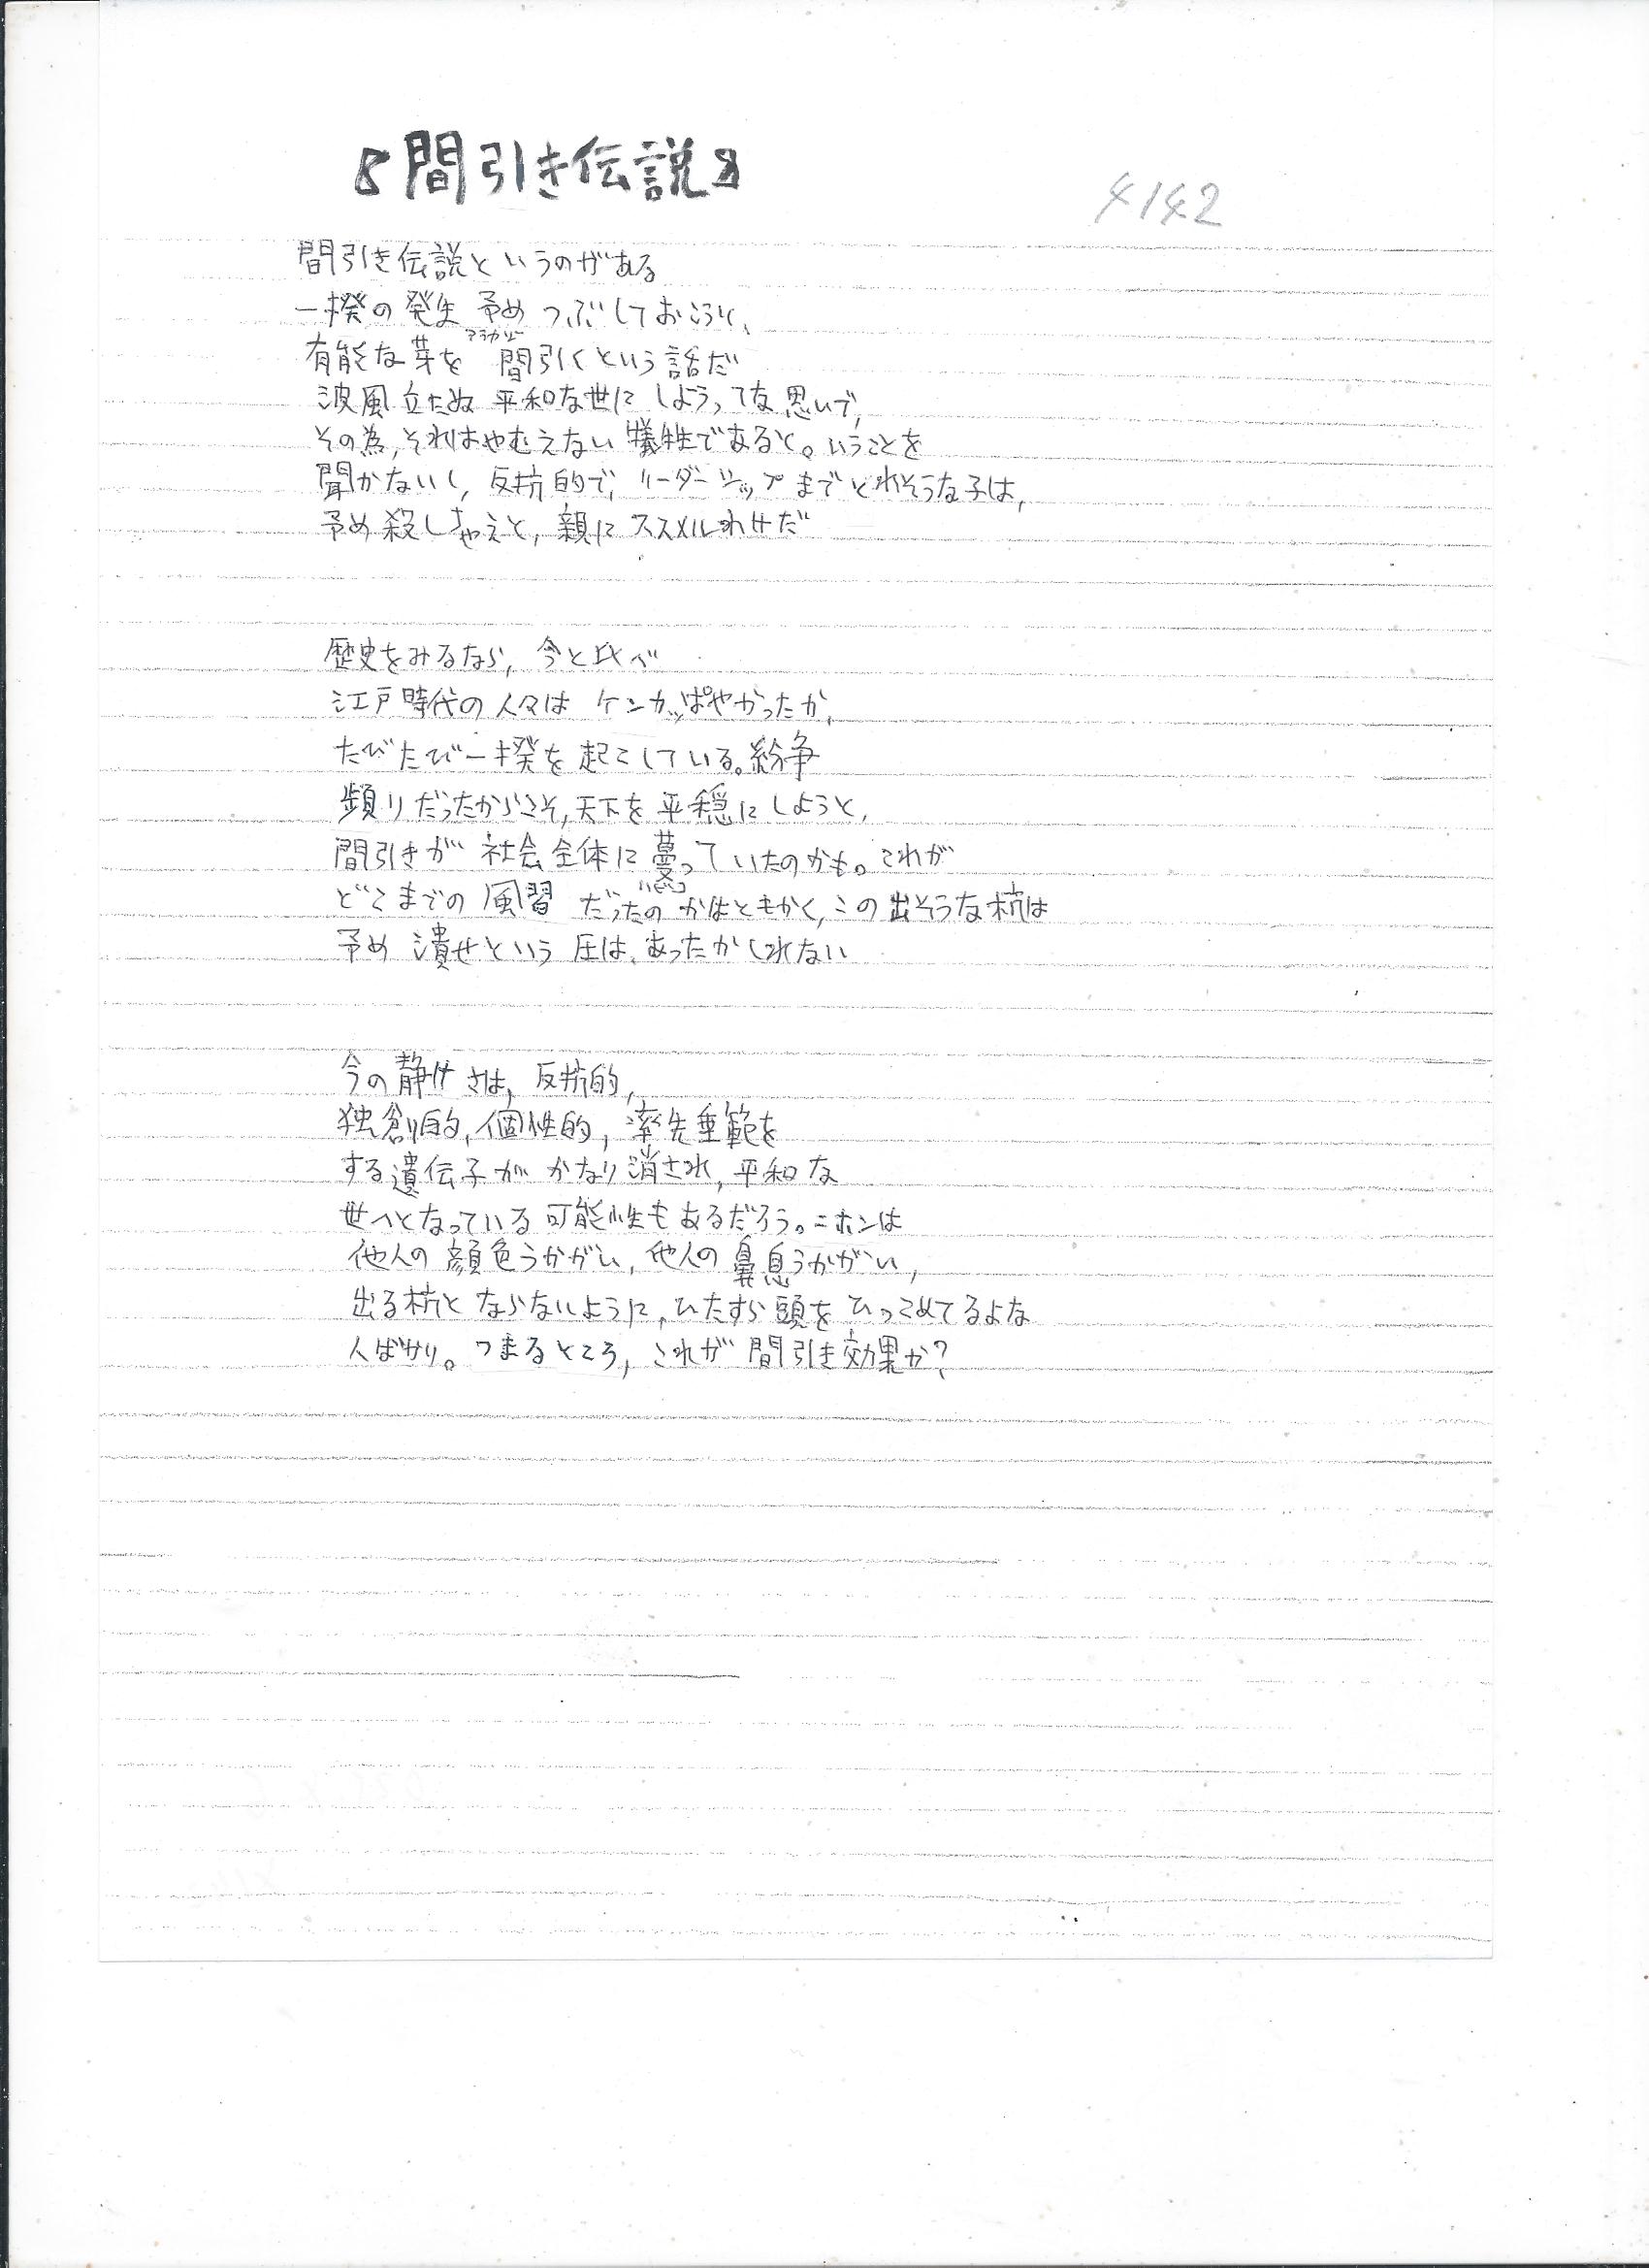 『間引き伝説』
4142
間引き伝説というのがある
一揆の発生 予め つぶしておこうと、
アラカジ
有能な芽を 間引くという話だ
波風立たぬ 平和な世に しようってな思いで、
その為、それはやむえない犠牲であると。いうことを
聞かないし、反抗的で、リーダーシップまでとれそうな子は、
予め殺しちゃえと、親にススメルわけだ
歴史をみるなら、今と比べ
江戸時代の人々は ケンカッぱやかったか、
たびたび一揆を起こしている。紛争
頻りだったからこそ、天下を平穏にしようと、
間引きが 社会全体に蔓っていたのかも。これが
ハビコ
どこまでの風習 だったのかはともかく、この出そうな杭は
予め 潰せという圧は、あったかしれない
今の静けさは、反抗的、
独創的、個性的、率先垂範を
する遺伝子が かなり消され、平和な
世へとなっている可能性もあるだろう。ニホンは
他人の顔色うかがい、他人の鼻息うかがい、
出る杭と ならないように、ひたすら頭をひっこめてるよな
人ばかり。つまるところ、これが間引き効果か?